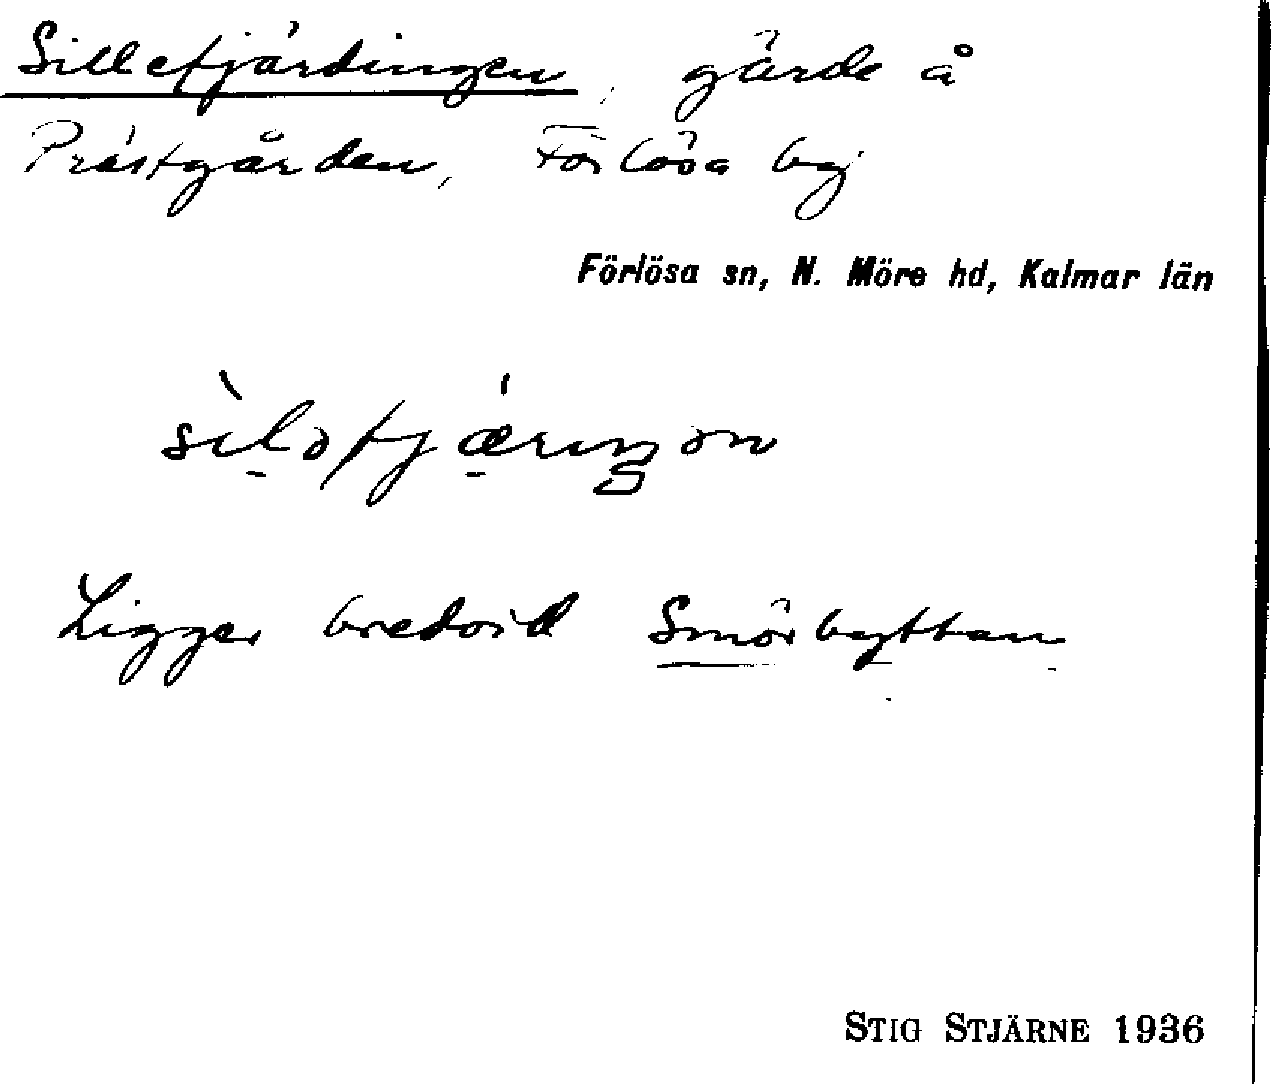 Sillefjärdingen, gärde å
Prästgården, Förlösa by.
Förlösa sn, N. Möre hd, Kalmar län
sìləfjǽrıŋən
Ligger bredvid Smörbyttan
STIG STJÄRNE 1936